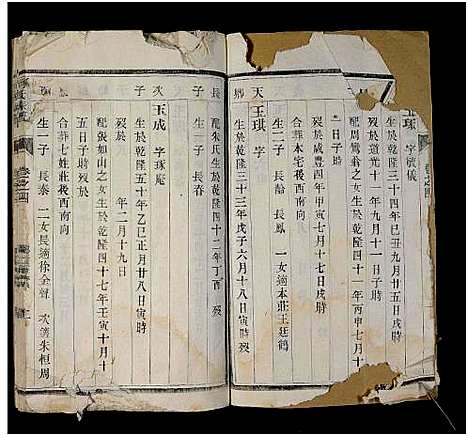 玉琢 字璥儀
生於乾隆三十四年己丑九月廿五日戌時
歿於道光十一年九月十一日子時
配周嘗觀之女生於乾隆四十一年丙申七月十
一日子時
歿於咸豐四年甲寅七月十七日戌時
合葬本宅後西南向
生二子 長齡 長鳳 一女適本莊王廷鶴
天錫子
玉琪 字
生於乾隆三十三年戊子六月十八日寅時 歿
配朱氏生於乾隆四十二年丁酉 歿
生一子 長春
長子
次子
玉成 字琢庵
生於乾隆五十年乙巳正月廿八日寅時
歿於 年二月十九日
配張如山之女生於乾隆四十七年壬寅十月十
五日子時歿於
合葬七姓莊後西南向
生一子 長泰 二女長適徐全聲 次適朱恒周
卷之四